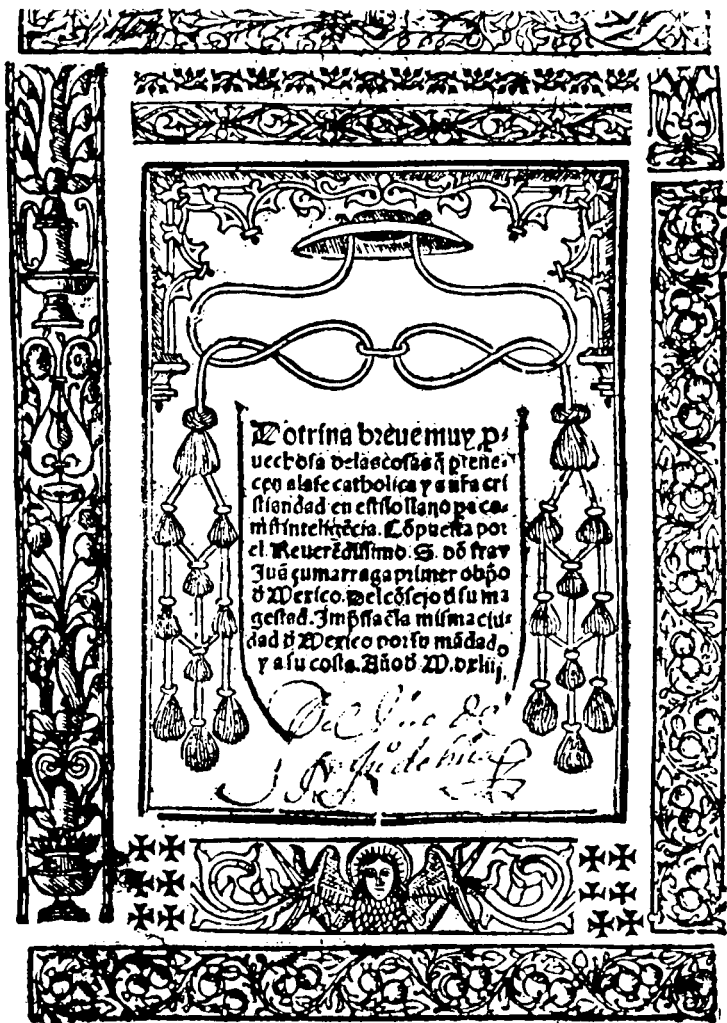 Dotrina breue muy ꝓ-
uechosa delas cosas q̃ ꝑtene-
cen ala fe catholica y a nr̃a cri
stiandad en estilo llano pa co-
mũ intelligẽcia. Cõpuesta por
el Reuerẽdissimo. S. dõ fray
Juã çumarraga primer obp̃o
d̃ Mexico. Del cõsejo d̃ su ma
gestad. Imp̃ssa ẽ la misma ciu-
dad d̃ Mexico por su mãdado
y a su costa. Año d̃. M.dxliij